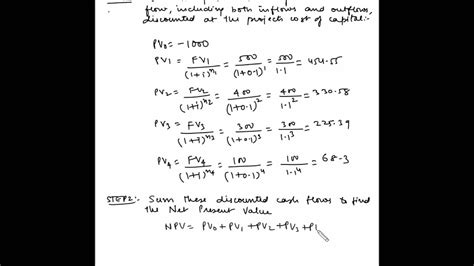 flow, including both inflows and outflows,
discounted at the projects cost of capital:-
PV0 = -1000
PV1 = FV1/(1+i)^n1 = 500/(1+0.1)^1 = 500/1.1 = 454.55
PV2 = FV2/(1+i)^n2 = 400/(1+0.1)^2 = 400/1.1^2 = 330.58
PV3 = FV3/(1+i)^n3 = 300/(1+0.1)^3 = 300/1.1^3 = 225.39
PV4 = FV4/(1+i)^n4 = 100/(1+0.1)^4 = 100/1.1^4 = 68.3
STEP2:- Sum these discounted cash flows to find
the Net Present Value
NPV = PV0 + PV1 + PV2 + PV3 + P